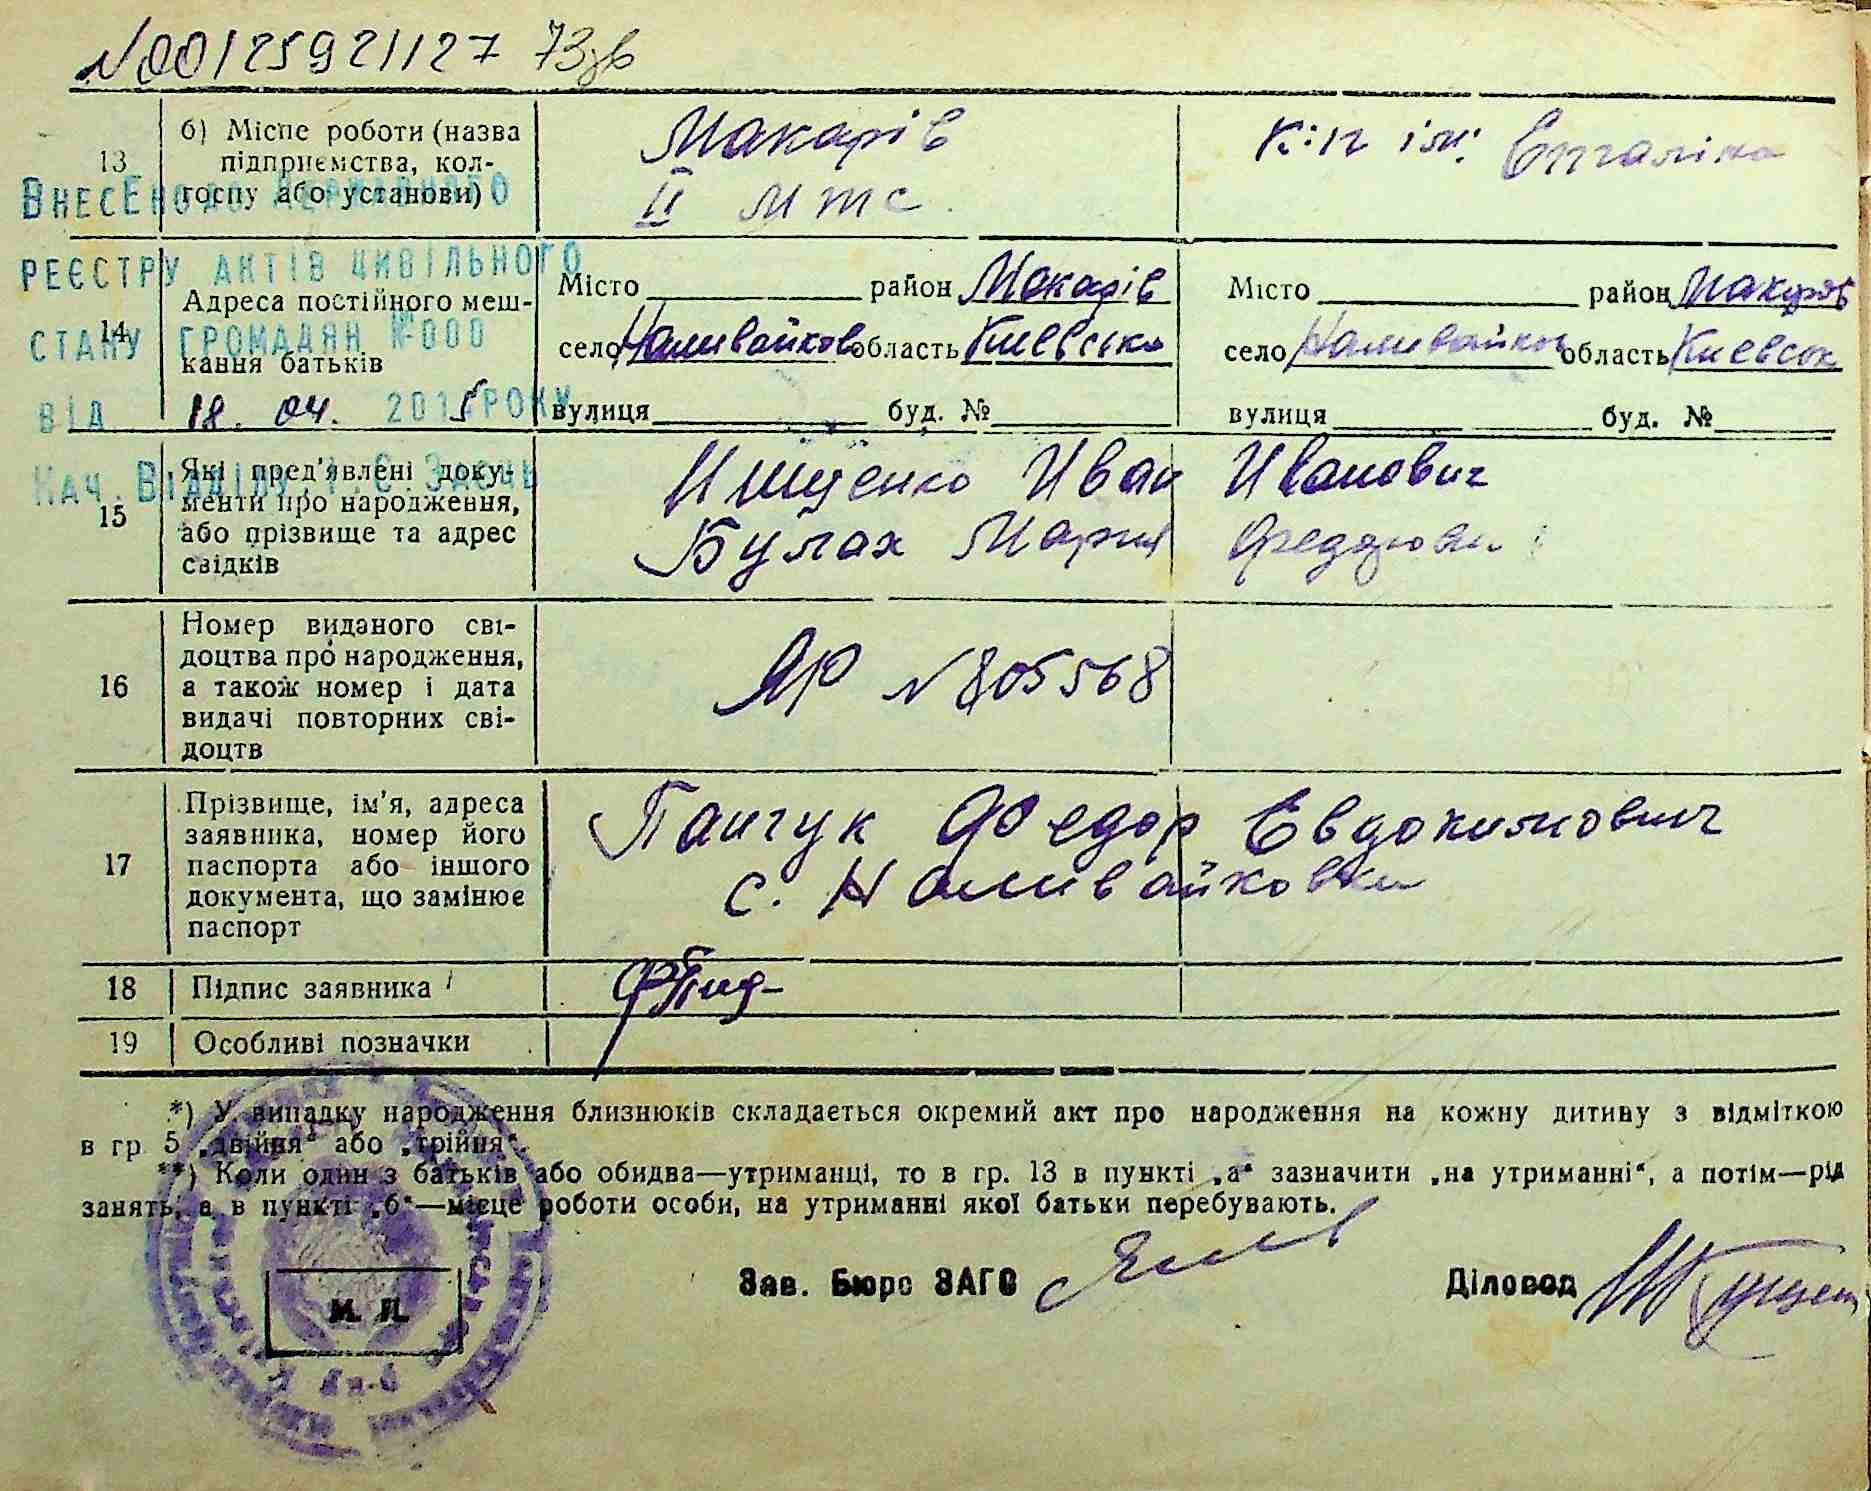 N00125921127 73зв
13
б) Місце роботи (назва
підприємства, кол-
госпу або установи)
Макарів
II МТС
к-п ім.
ВнесЕно до Державного
реєстру актів цивільного
стану громадян №000
від 18. 04. 2015 року
Нач. Відділу
14
Адреса постійного меш-
кання батьків
Місто район Макарів
село Наливайков область Киевська
вулиця буд. №
Місто район Макарів
село Наливайков область Киевськ
вулиця буд. №
15
Які пред'явлені доку-
менти про народження,
або прізвище та адрес
свідків
Ищенко Иван Иванович
Булах Мария
16
Номер виданого сві-
доцтва про народження,
а також номер і дата
видачі повторних сві-
доцтв
ЯР N805568
17
Прізвище, ім'я, адреса
заявника, номер його
паспорта або іншого
документа, що замінює
паспорт
Панчук Федор Евдокимович
с. Наливайковки
18
Підпис заявника
19
Особливі позначки
*) У випадку народження близнюків складається окремий акт про народження на кожну дитину з відміткою
в гр. 5 „двійня“ або „трійня“.
**) Коли один з батьків або обидва—утриманці, то в гр. 13 в пункті „а“ зазначити „на утриманні“, а потім—рід
занять, а в пункті „б“—місце роботи особи, на утриманні якої батьки перебувають.
Зав. Бюро ЗАГС
Діловод
М. П.